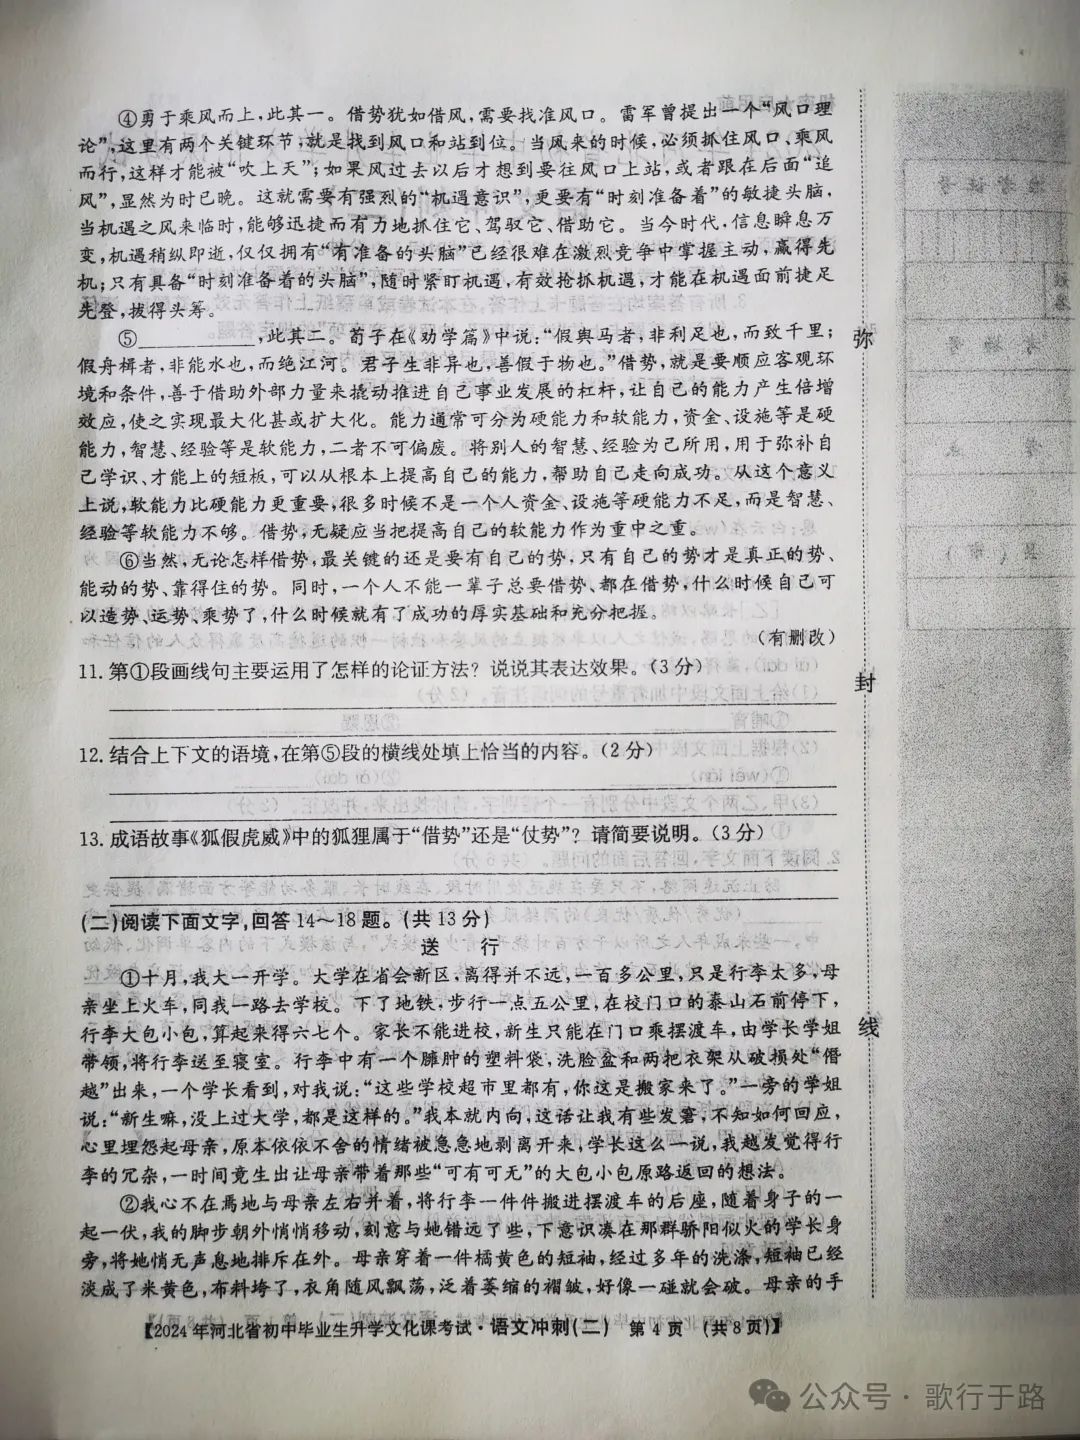 ④勇于乘风而上,此其一。借势犹如借风,需要找准风口。雷军曾提出一个“风口理
论”,这里有两个关键环节,就是找到风口和站到位。当风来的时候,必须抓住风口、乘风
而行,这样才能被“吹上天”;如果风过去以后才想到要往风口上站,或者跟在后面“追
风”,显然为时已晚。这就需要有强烈的“机遇意识”,更要有“时刻准备着”的敏捷头脑,
当机遇之风来临时,能够迅捷而有力地抓住它、驾驭它、借助它。当今时代,信息瞬息万
变,机遇稍纵即逝,仅仅拥有“有准备的头脑”已经很难在激烈竞争中掌握主动,赢得先
机;只有具备“时刻准备着的头脑”,随时紧盯机遇,有效抢抓机遇,才能在机遇面前捷足
先登,拔得头筹。
⑤__________,此其二。荀子在《劝学篇》中说:“假舆马者,非利足也,而致千里;
假舟楫者,非能水也,而绝江河。君子生非异也,善假于物也。”借势,就是要顺应客观环
境和条件,善于借助外部力量来撬动推进自己事业发展的杠杆,让自己的能力产生倍增
效应,使之实现最大化甚或扩大化。能力通常可分为硬能力和软能力,资金、设施等是硬
能力,智慧、经验等是软能力,二者不可偏废。将别人的智慧、经验为己所用,用于弥补自
己学识、才能上的短板,可以从根本上提高自己的能力,帮助自己走向成功。从这个意义
上说,软能力比硬能力更重要,很多时候不是一个人资金、设施等硬能力不足,而是智慧、
经验等软能力不够。借势,无疑应当把提高自己的软能力作为重中之重。
⑥当然,无论怎样借势,最关键的还是要有自己的势,只有自己的势才是真正的势、
能动的势、靠得住的势。同时,一个人不能一辈子总要借势、都在借势,什么时候自己可
以造势、运势、乘势了,什么时候就有了成功的厚实基础和充分把握。
(有删改)
11. 第①段画线句主要运用了怎样的论证方法?说说其表达效果。(3分)
12. 结合上下文的语境,在第⑤段的横线处填上恰当的内容。(2分)
13. 成语故事《狐假虎威》中的狐狸属于“借势”还是“仗势”?请简要说明。(3分)
(二)阅读下面文字,回答14~18题。(共13分)
送 行
①十月,我大一开学。大学在省会新区,离得并不远,一百多公里,只是行李太多,母
亲坐上火车,同我一路去学校。下了地铁,步行一点五公里,在校门口的泰山石前停下,
行李大包小包,算起来得六七个。家长不能进校,新生只能在门口乘摆渡车,由学长学姐
带领,将行李送至寝室。行李中有一个臃肿的塑料袋,洗脸盆和两把衣架从破损处“僭
越”出来,一个学长看到,对我说:“这些学校超市里都有,你这是搬家来了。”一旁的学姐
说:“新生嘛,没上过大学,都是这样的。”我本就内向,这话让我有些发窘,不知如何回应,
心里埋怨起母亲,原本依依不舍的情绪被急急地剥离开来,学长这么一说,我越发觉得行
李的冗杂,一时间竟生出让母亲带着那些“可有可无”的大包小包原路返回的想法。
②我心不在焉地与母亲左右并着,将行李一件件搬进摆渡车的后座,随着身子的一
起一伏,我的脚步朝外悄悄移动,刻意与她错远了些,下意识凑在那群骄阳似火的学长身
旁,将她悄无声息地排斥在外。母亲穿着一件橘黄色的短袖,经过多年的洗涤,短袖已经
淡成了米黄色,布料垮了,衣角随风飘荡,泛着萎缩的褶皱,好像一碰就会破。母亲的手
【2024年河北省初中毕业生升学文化课考试·语文冲刺(二) 第4页 (共8页)】
弥
封
线
公众号·歌行于路